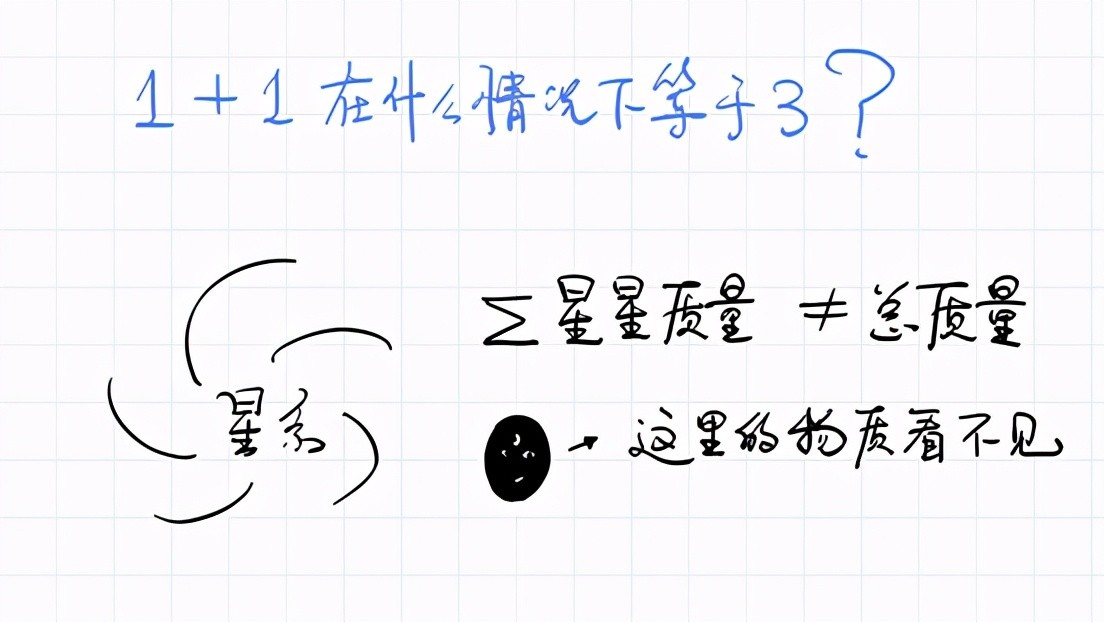 1+1在什么情况下等于3?
星系
∑星星质量 ≠ 总质量
→ 这里的物质看不见